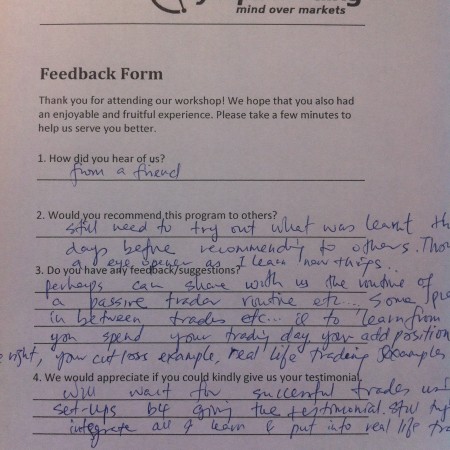 mind over markets
Feedback Form
Thank you for attending our workshop! We hope that you also had
an enjoyable and fruitful experience. Please take a few minutes to
help us serve you better.
1. How did you hear of us?
from a friend
2. Would you recommend this program to others?
still need to try out what was learnt
days before recommending to others.
a eye opener as I learn new things..
3. Do you have any feedback/suggestions?
perhaps can share with us the routine of
a passive trader routine etc... Some
in between trades etc... is to learn from
you spend your trading day, your add position
right, your cut loss example, real life trading examples
4. We would appreciate if you could kindly give us your testimonial.
will want for successful trades
set-ups b4 giving the testimonial. Still
integrate all I learn & put into real life